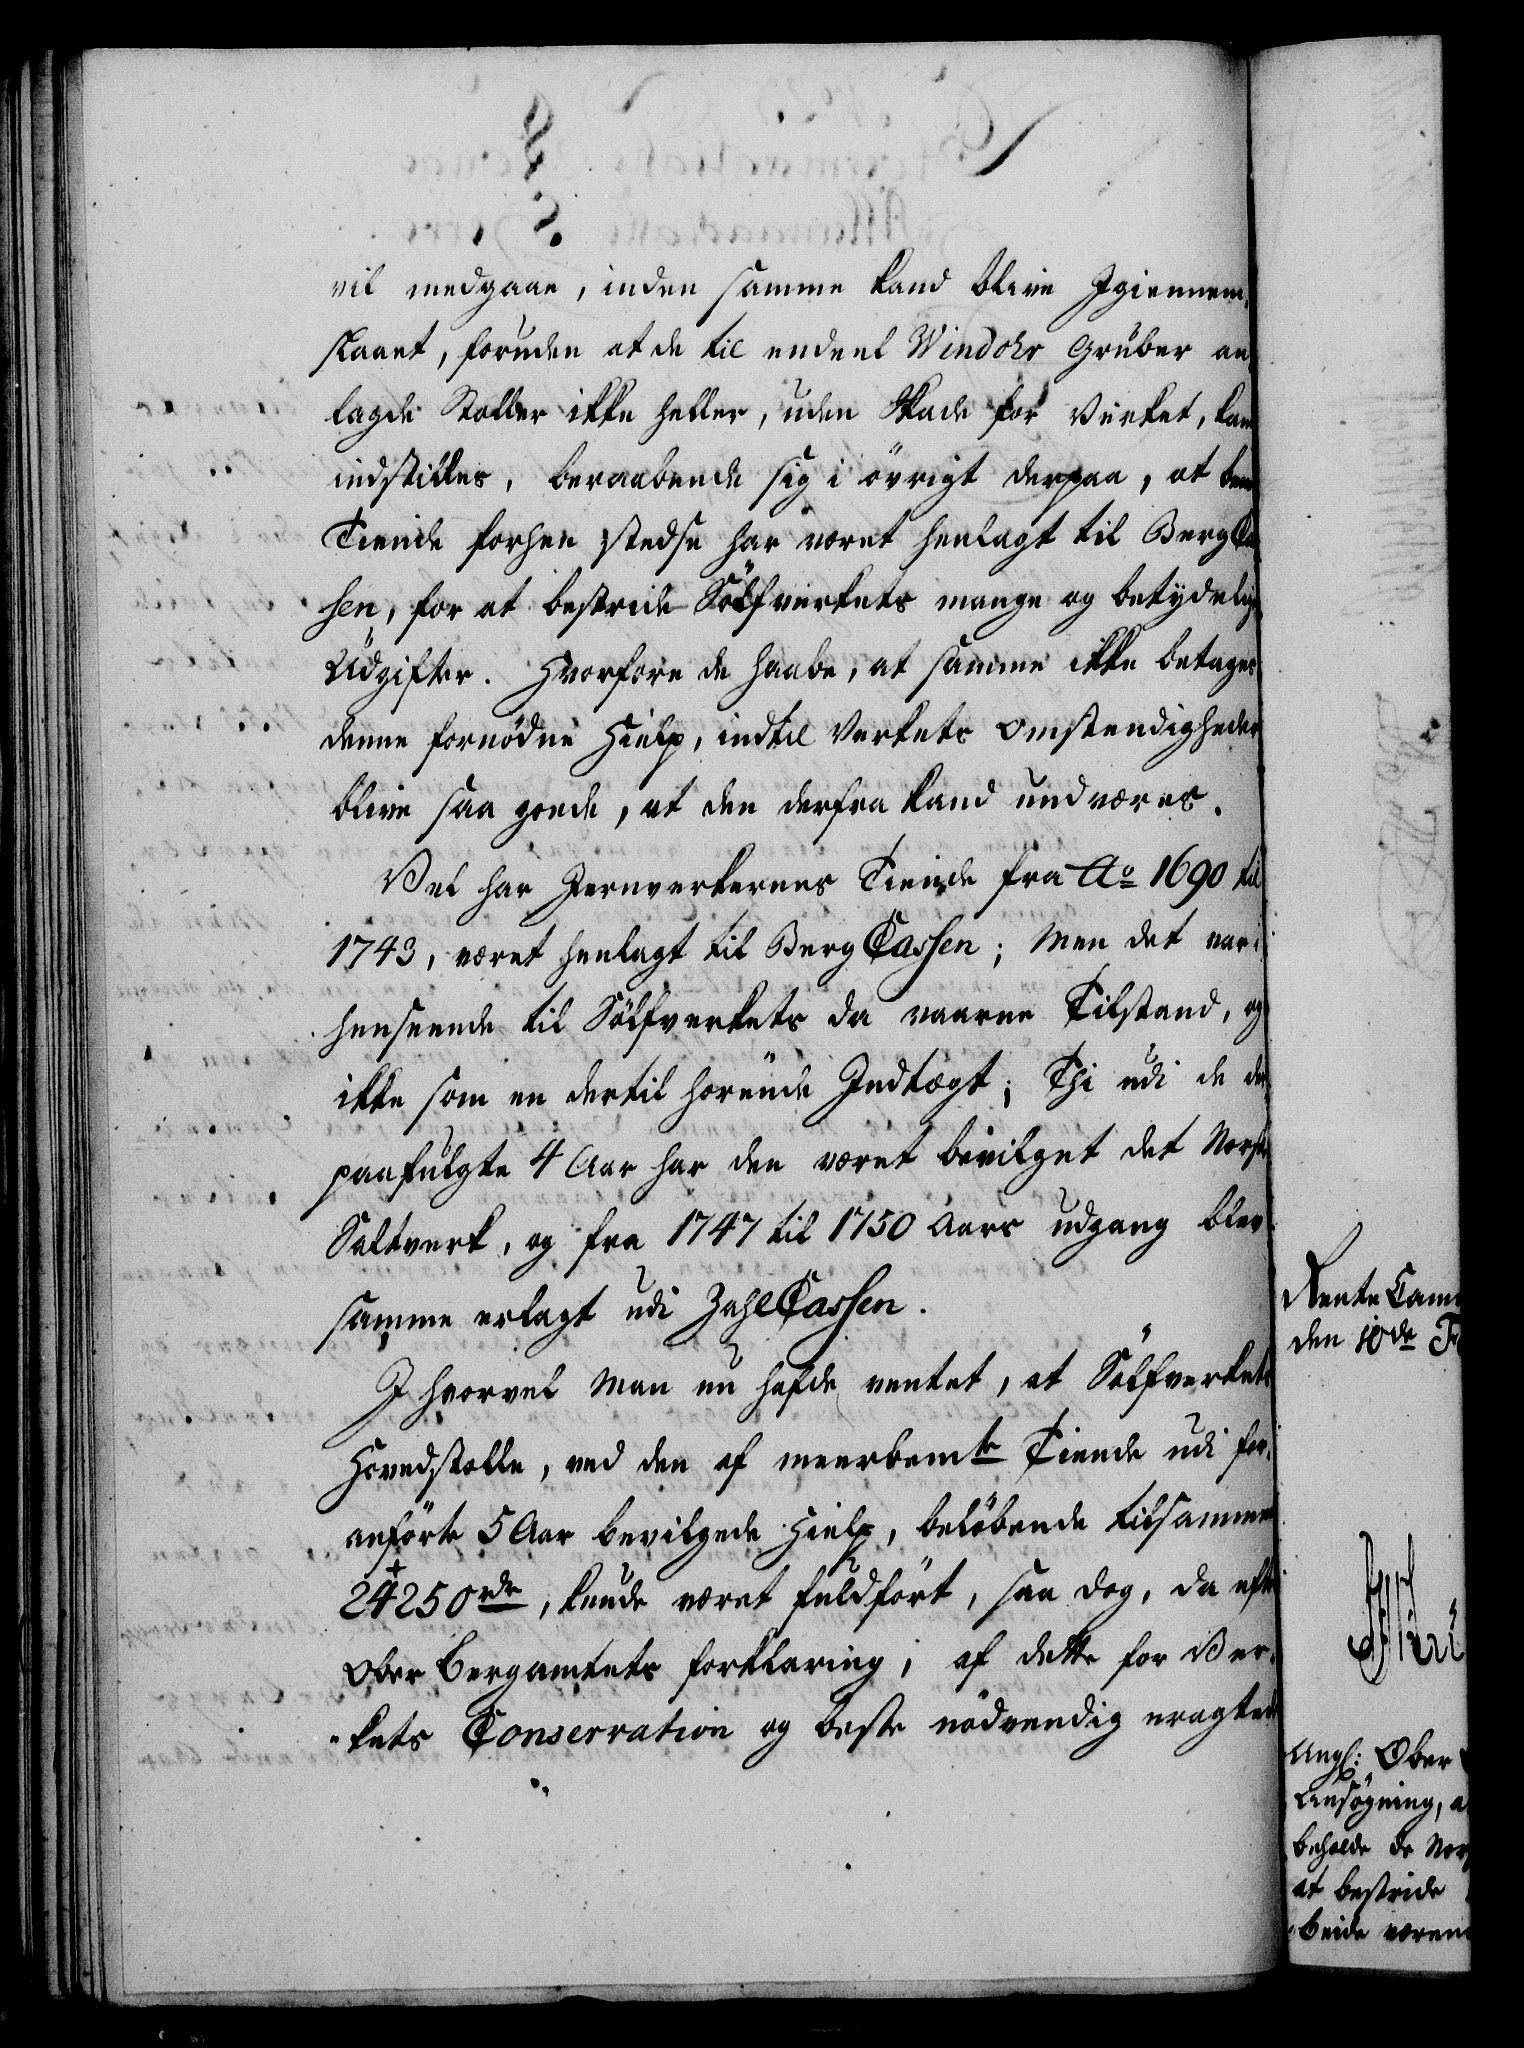 vil medgaae, inden samme kand blive Igiennem-
slaaet, foruden at de til endeel Windohr Gruber an-
lagde Stoller ikke heller, uden Skade for Verket, kand
indstilles, beraabende sig i övrigt derpaa, at bem
Tiende forhen stedse har været henlagt til Berg Cas
sen, for at bestride Sölfverkets mange og betydelige
Udgifter. Hvorfore de haabe, at samme ikke betages
denne fornödne Hielp, indtil Verkets Omstendigheder
blive saa goede, at den derfra kand undværes.
Vel har Jernverkernes Tiende fra Ao 1690 til
1743, været henlagt til Berg Cassen; Men det var i
henseende til Sölfverkets da vaarne Tilstand, og
ikke som en dertil horende Indtægt; Thi udi de der
paafulgte 4 Aar har den været bevilget det Norske
Saltverk, og fra 1747 til 1750 Aars udgang blev
samme erlagt udi ZahlCassen.
I hvorvel Man nu hafde ventet, at Sölfverkets
Hovedstolle, ved den af meerbemte Tiende udi for-
anförte 5 Aar bevilgede Hielp, belöbende tilsammen
24250 rdr, kunde været fuldfört, saa dog, da efter
Ober Bergamtets forklaring, af dette for Ver-
kets Conservation og beste nödvendig eragtede
Rente Cam
den 18de F
Angl: Ober
Ansögning, a
beholde de Nor
at bestride
beide væren